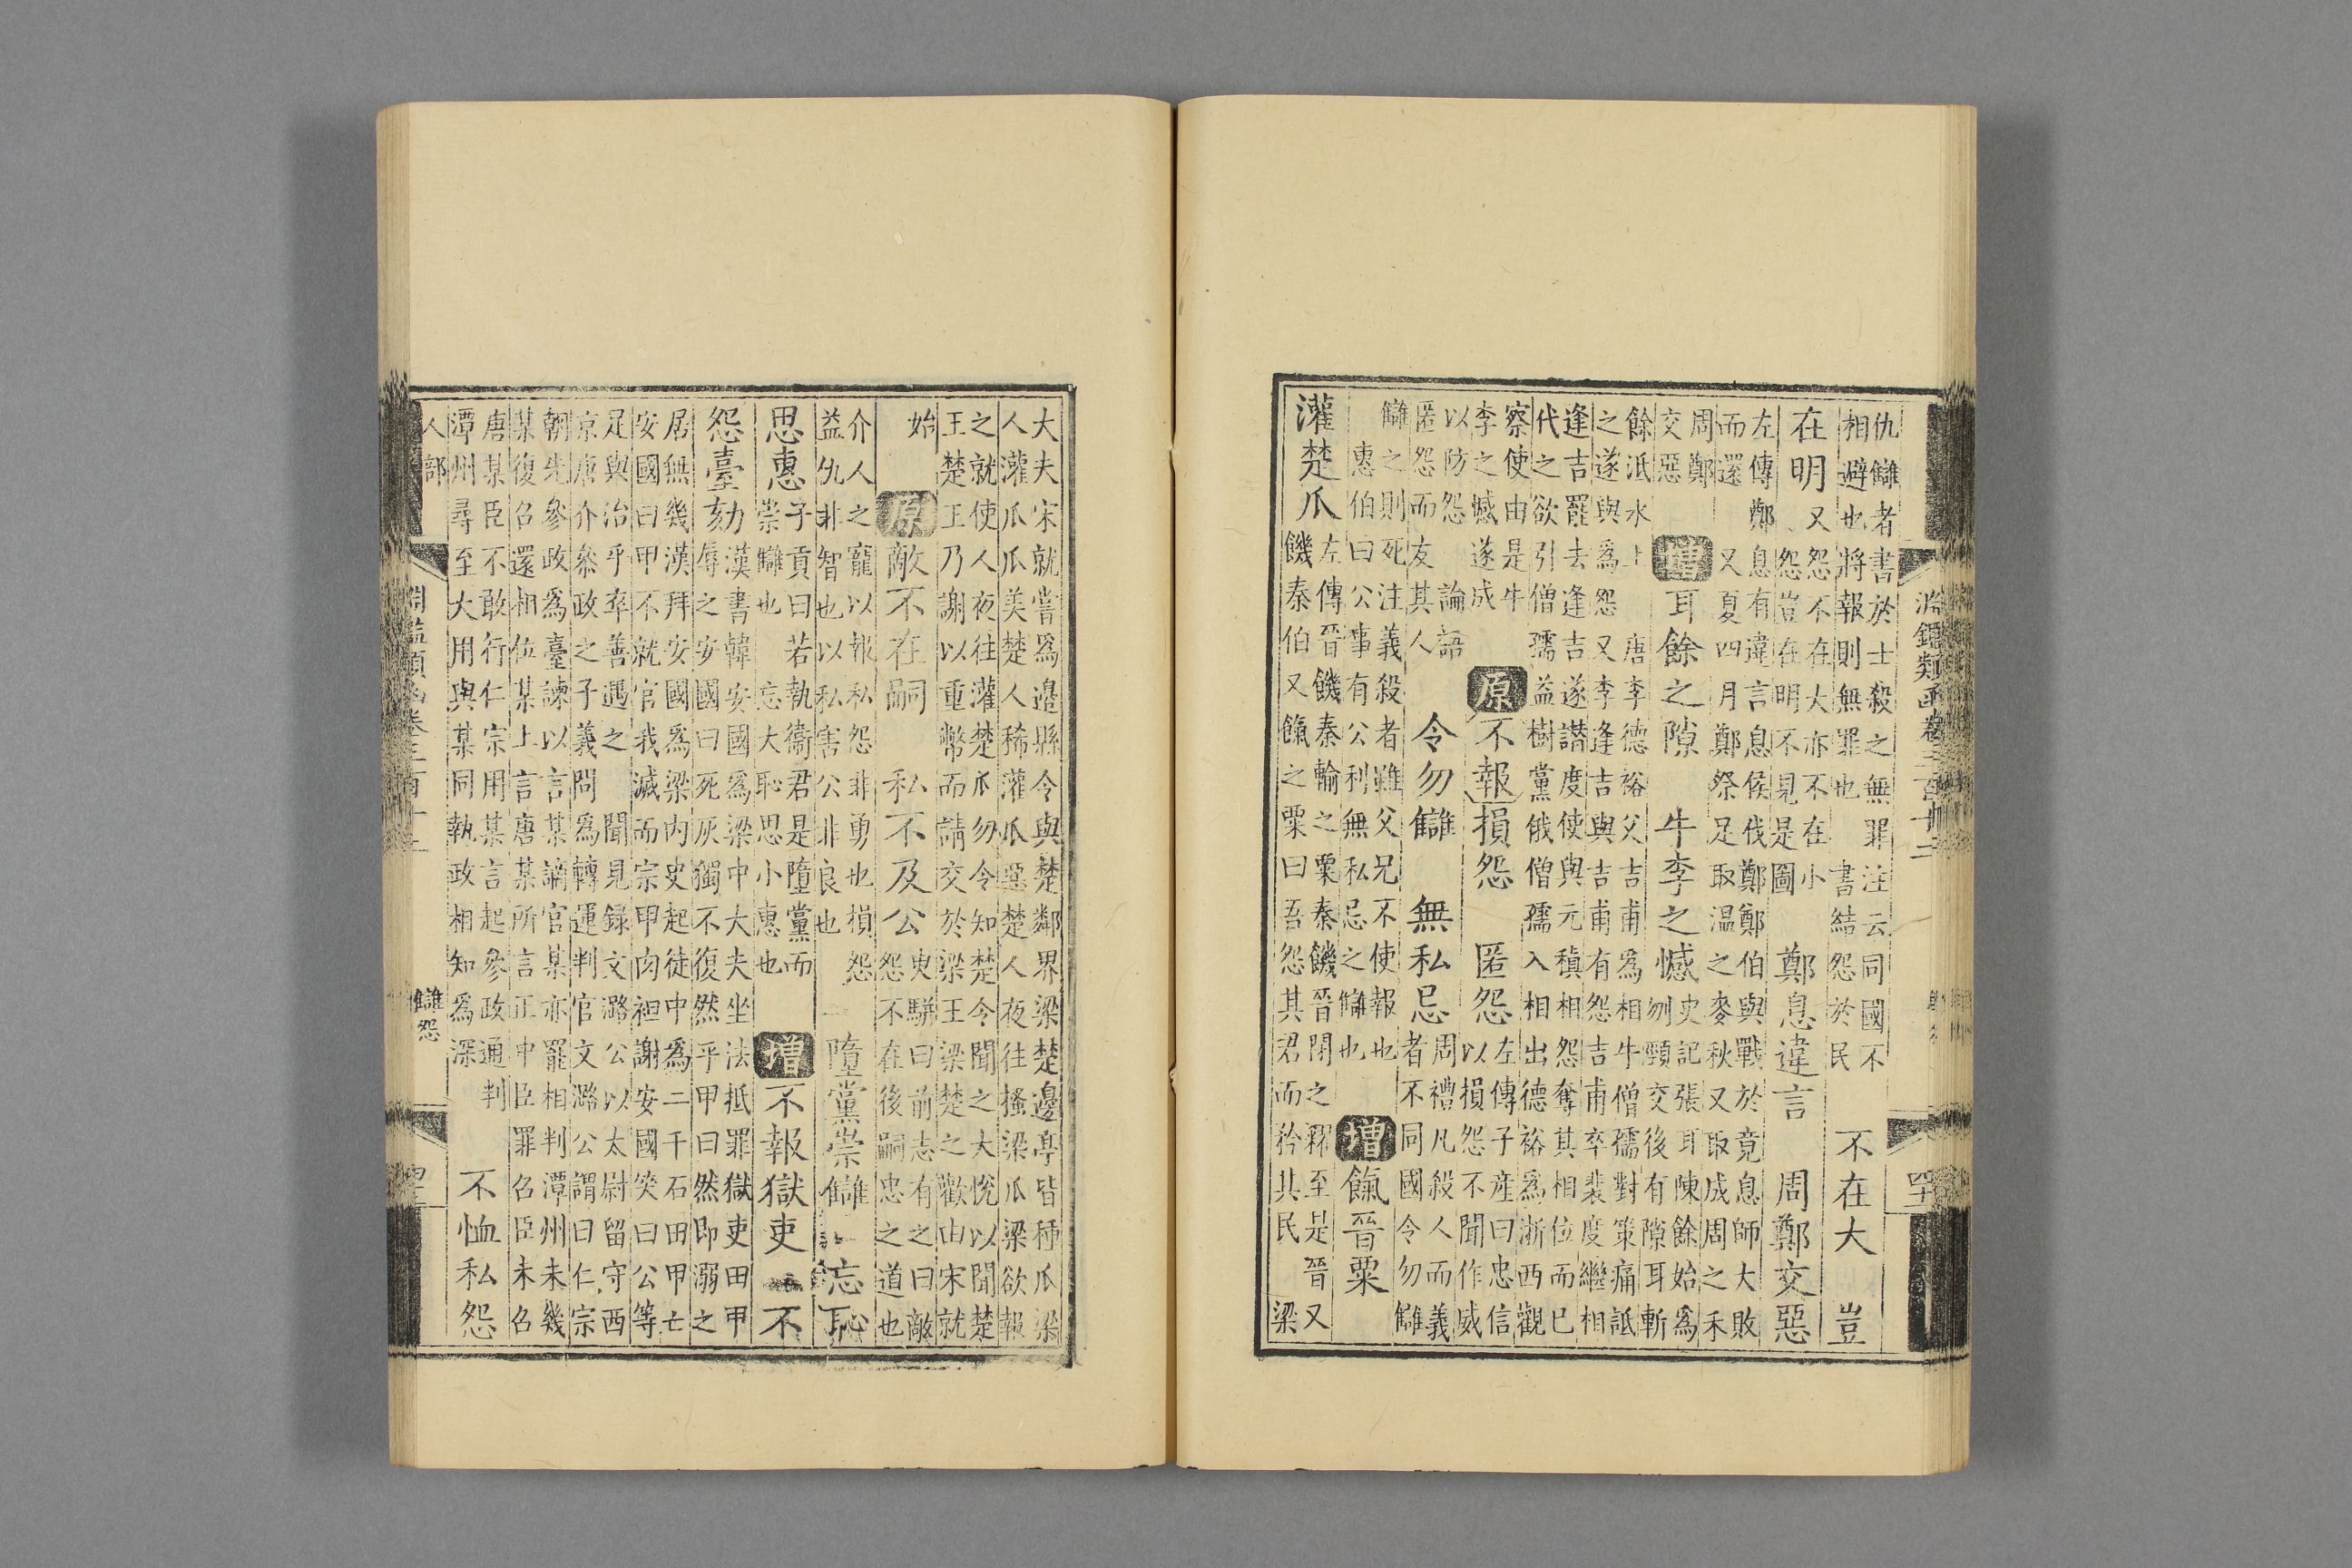 淵鑑類函卷三百十二
四十
仇讎者書於士殺之無罪注云同國不
相避也將報則無罪也　書結怨於民
不在大　豈
在明
又怨不在大亦不在小
怨豈在明不見是圖
鄭息違言　周鄭交惡
左傳鄭息有違言息侯伐鄭鄭伯與戰於竟息師大敗
而還　又夏四月鄭祭足取溫之麥秋又取成周之禾
周鄭
交惡
增耳餘之隙　牛李之憾
史記張耳陳餘始爲
刎頸交後有隙耳斬
餘泜水上　唐李德裕父吉甫爲相牛僧孺對策痛詆
之遂與爲怨　又李逢吉與吉甫有怨吉甫卒裴度繼相
逢吉罷去逢吉遂譖度使與元稹相怨奪其相位而已
代之欲引僧孺益樹黨俄僧孺入相出德裕爲浙西觀
察使由是牛
李之憾遂成
原不報損怨　匿怨
左傳子產曰忠信
以損怨不聞作威
以防怨　論語
匿怨而友其人
令勿讎　無私忌
周禮凡殺人而義
者不同國令勿讎
讎之則死注義殺者雖父兄不使報也
惠伯曰公事有公利無私忌之讎也
增餼晉粟
灌楚瓜
左傳晉饑秦輸之粟秦饑晉閉之糴至是晉又
饑秦伯又餼之粟曰吾怨其君而矜其民　梁
大夫宋就嘗爲邊縣令與楚鄰界梁楚邊亭皆種瓜梁
人灌瓜瓜美楚人稀灌瓜惡楚人夜往搔梁瓜梁欲報
之就使人夜往灌楚瓜勿令知楚令聞之大悅以聞楚
王楚王乃謝以重幣而請交於梁王梁楚之歡由宋就
始
原敵不在嗣　私不及公
臾駢曰前志有之曰敵
怨不在後嗣忠之道也
介人之寵以報私怨非勇也損怨
益仇非智也以私害公非良也
隳黨崇讎　忘恥
思惠
子貢曰若執衞君是隳黨而
崇讎也　忘大恥思小惠也
增不報獄吏　不
怨臺劾
漢書韓安國爲梁中大夫坐法抵罪獄吏田甲
辱之安國曰死灰獨不復然乎甲曰然即溺之
居無幾漢拜安國爲梁內史起徒中爲二千石田甲亡
安國曰甲不就官我滅而宗甲肉袒謝安國笑曰公等
足與治乎卒善遇之　聞見録文潞公以太尉留守西
京唐介參政之子義問爲轉運判官文潞公謂曰仁宗
朝先參政爲臺諫以言某謫官某亦罷相判潭州未幾
某復召還相位某上言唐某所言正中臣罪召臣未召
唐某臣不敢行仁宗用某言起參政通判
潭州尋至大用與某同執政相知爲深
不恤私怨
人部
讎怨